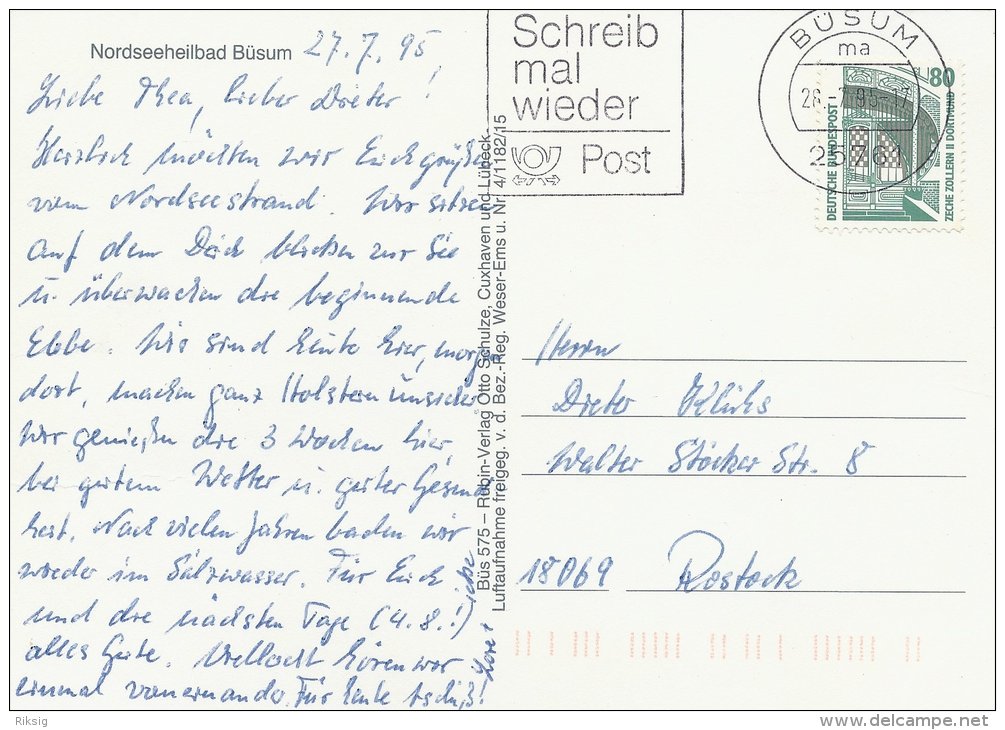 Nordseeheilbad Büsum 27.7.95
Liebe Thea, lieber Dieter!
Herzlich möchten wir Euch grüßen
vom Nordseestrand. Wir sitzen
auf dem Deich blicken zur See
u. überwachen die beginnende
Ebbe. Wir sind heute hier, morgen
dort, machen ganz Holstein unsicher
Wir genießen die 3 Wochen hier,
bei gutem Wetter u. guter Gesund
heit. Nach vielen Jahren baden wir
wieder im Salzwasser. Für Euch
und die nächsten Tage (4.8.!)
alles Gute. Vielleicht hören wir
einmal voneinander. Für heute tschüß!
Büs 575 – Rubin-Verlag Otto Schulze, Cuxhaven und Lübeck
Luftaufnahme freigeg. v. d. Bez.-Reg. Weser-Ems u. Nr. 4/1182/15
Schreib
mal
wieder
Post
BÜSUM
ma
25761
80
DEUTSCHE BUNDESPOST
ZECHE ZOLLERN II DORTMUND
Herrn
Dieter
Walter Stöcker Str. 8
18069 Rostock
Riksig
delcampe.net